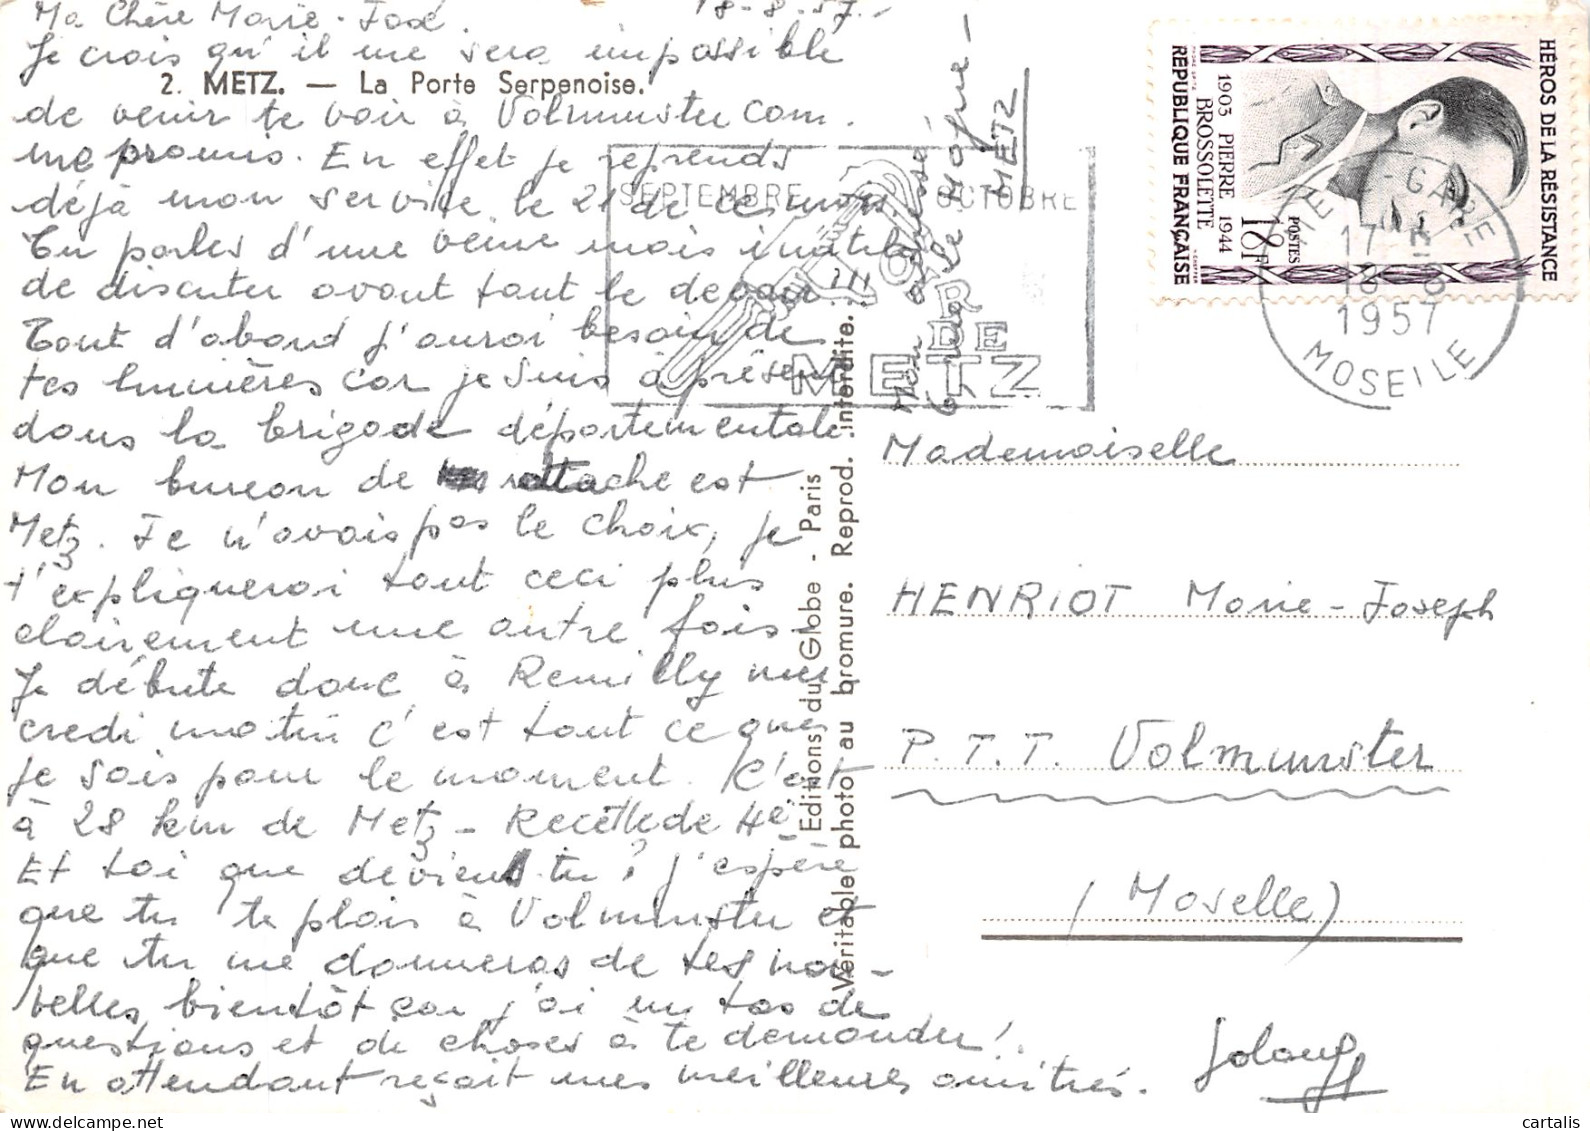 Ma Chère Marie-José. 18-8-57.
Je crois qu'il me sera impossible
2. METZ. — La Porte Serpenoise.
de venir te voir à Volmunster com-
me promis. En effet je reprends
déjà mon service le 21 de ce mois
Tu parles d'une veine mais inutile
de discuter avant tout le devoir!!!
Tout d'abord j'aurai besoin de
tes lumières car je suis à présent
dans la brigade départementale
Mon bureau de rattache est
Metz. Je n'avais pas le choix, je
t'expliquerai tout ceci plus
clairement une autre fois-
Je débute donc à Remilly mer
credi matin c'est tout ce que
je sais pour le moment. C'est
à 28 km de Metz - Recette de 4e-
Et toi que deviens tu? j'espère
que tu te plais à Volmunster et
que tu me donneras de tes nou-
velles bientôt car j'ai un tas de
questions et de choses à te demander!
En attendant reçoit mes meilleures amitiés.
Mon adresse
6 rue de le Mogne -
METZ
Editions du Globe - Paris
Véritable photo au bromure. Reprod. interdite.
SEPTEMBRE OCTOBRE
OR
DE
METZ
HÉROS DE LA RÉSISTANCE
POSTES
18F
1903 PIERRE 1944
BROSSOLETTE
REPUBLIQUE FRANÇAISE
METZ-GARE
17 H
18-8
1957
MOSELLE
Mademoiselle
HENRIOT Marie-Joseph
P.T.T. Volmunster
(Moselle)